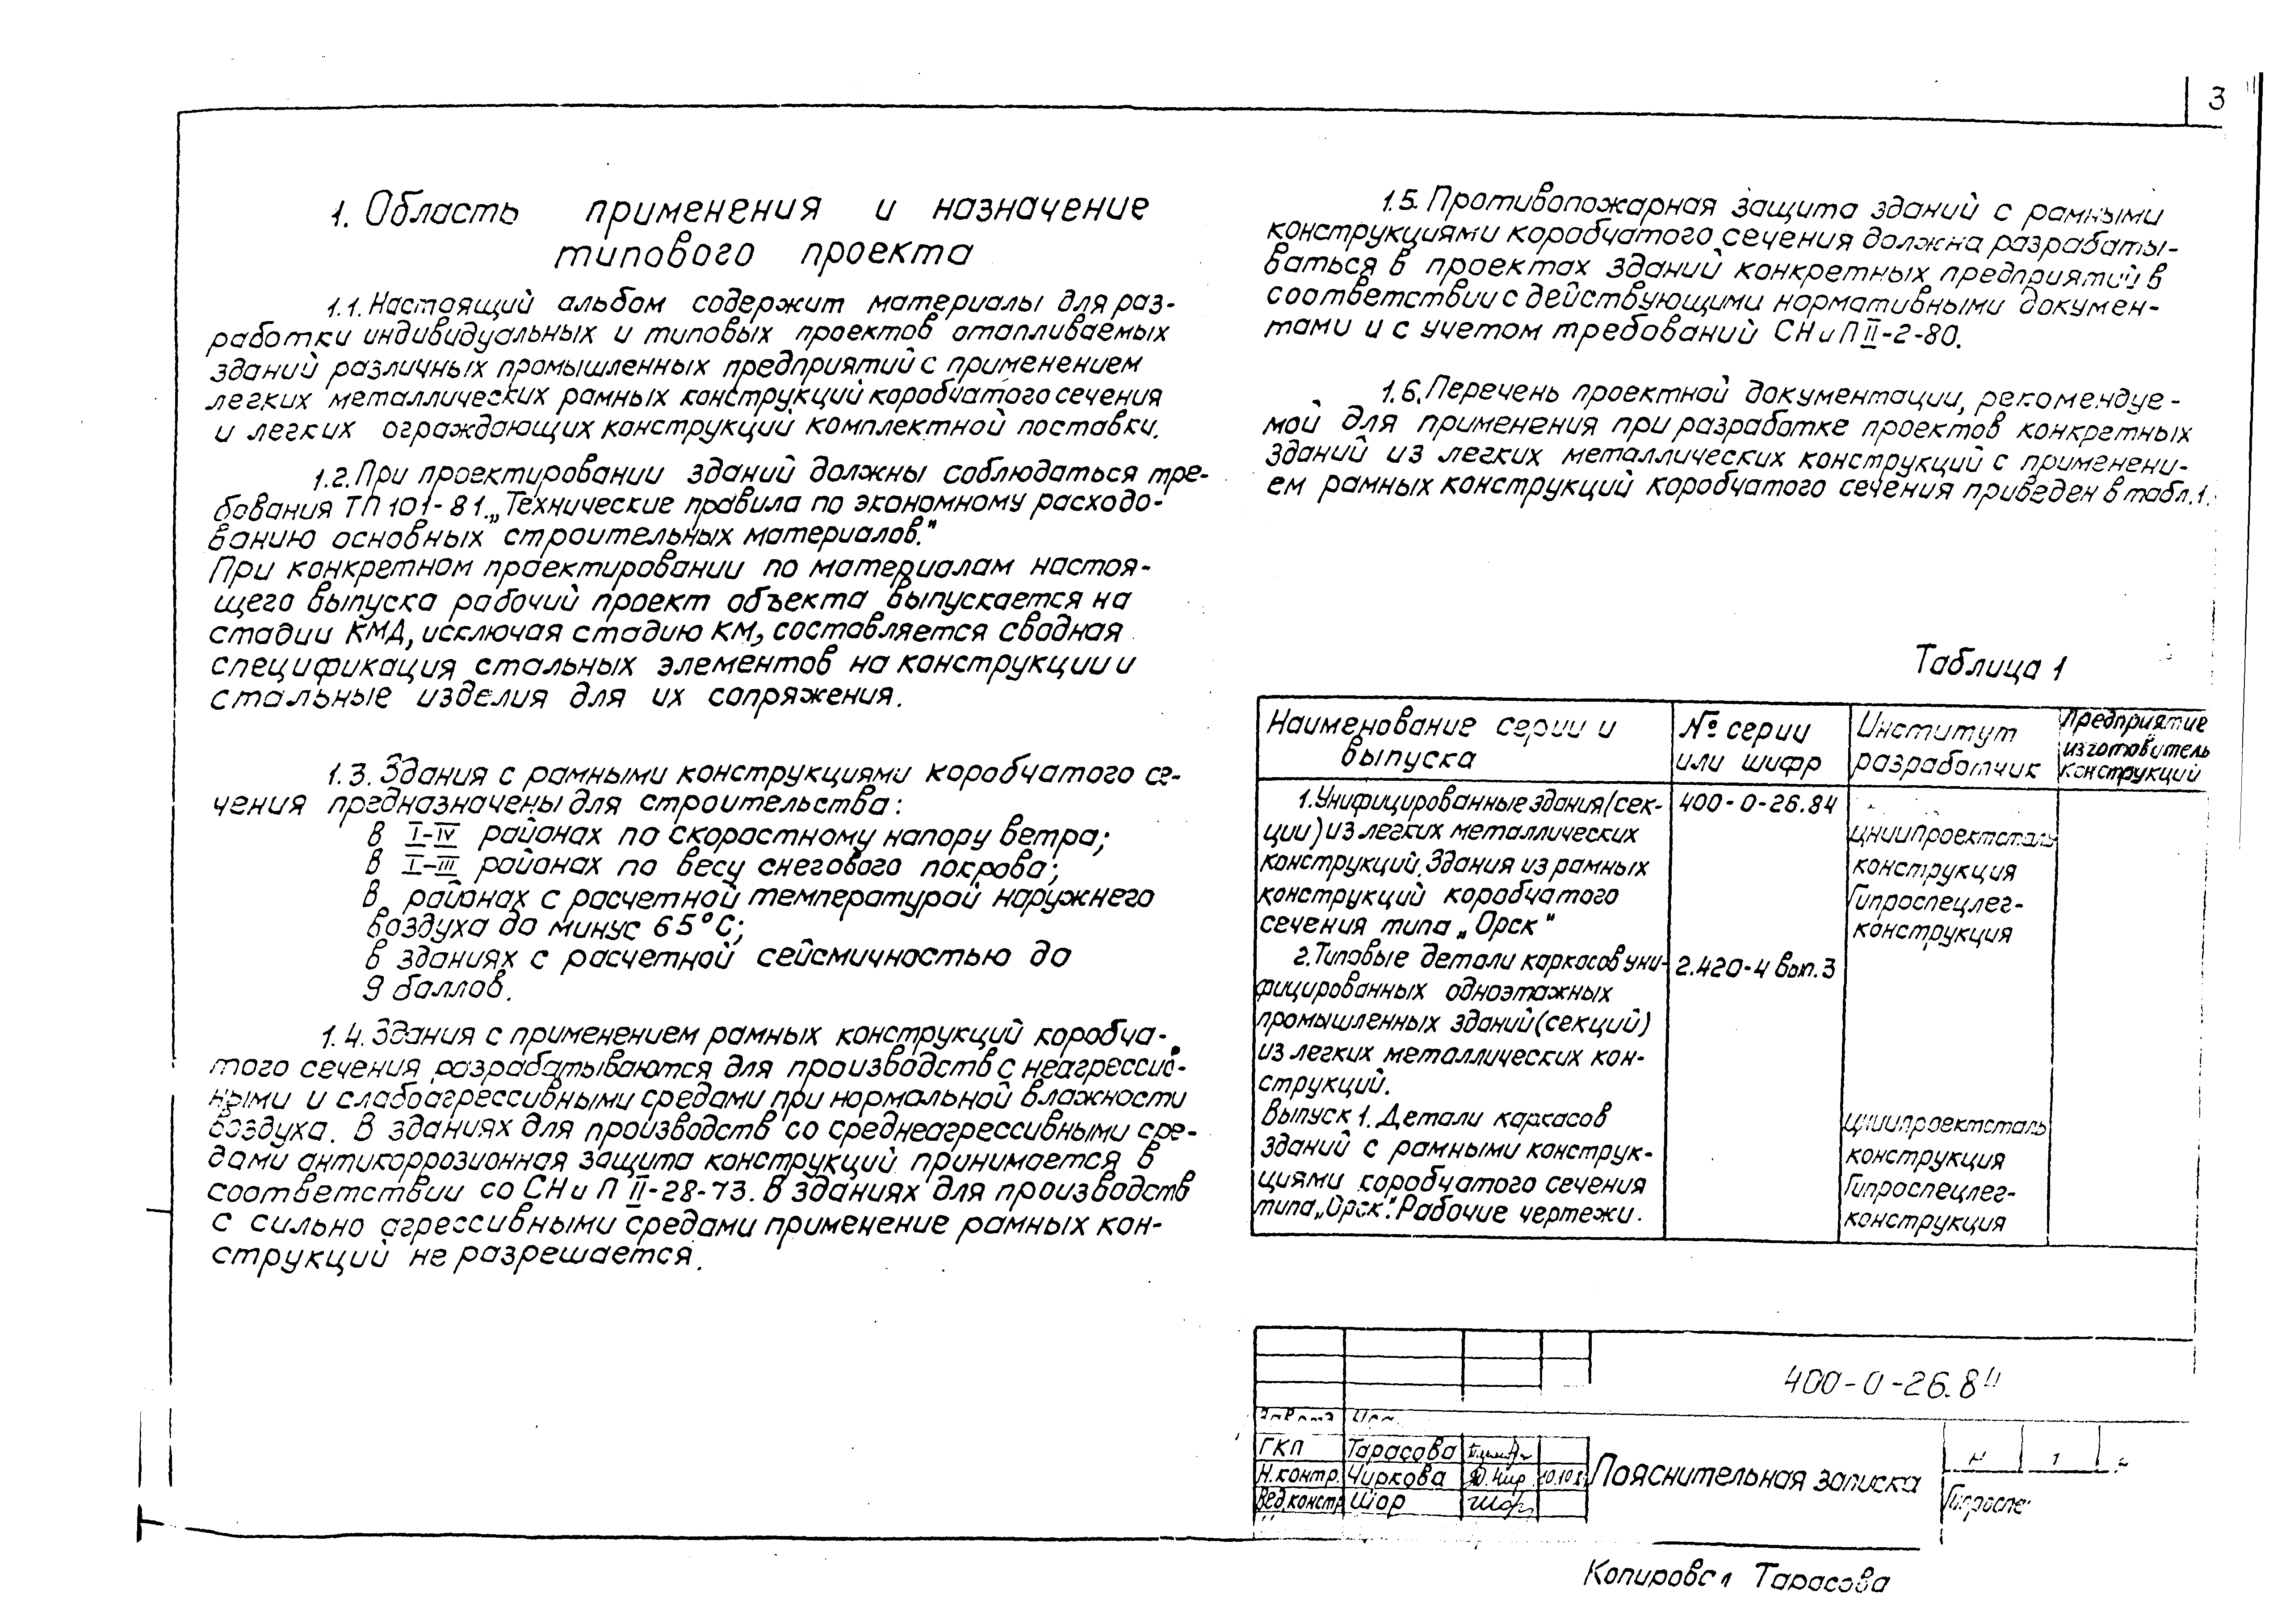 3
1. Область применения и назначение
типового проекта
1.1. Настоящий альбом содержит материалы для раз-
работки индивидуальных и типовых проектов отапливаемых
зданий различных промышленных предприятий с применением
легких металлических рамных конструкций коробчатого сечения
и легких ограждающих конструкций комплектной поставки.
1.2. При проектировании зданий должны соблюдаться тре-
бования ТП 101-81 „Технические правила по экономному расходо-
ванию основных строительных материалов."
При конкретном проектировании по материалам настоя-
щего выпуска рабочий проект объекта выпускается на
стадии КМД, исключая стадию КМ, составляется сводная
спецификация стальных элементов на конструкции и
стальные изделия для их сопряжения.
1.3. Здания с рамными конструкциями коробчатого се-
чения предназначены для строительства:
в I-IV районах по скоростному напору ветра;
в I-III районах по весу снегового покрова;
в районах с расчетной температурой наружнего
воздуха до минус 65°С;
в зданиях с расчетной сейсмичностью до
9 баллов.
1.4. Здания с применением рамных конструкций коробча-
того сечения разрабатываются для производств с неагрессив-
ными и слабоагрессивными средами при нормальной влажности
воздуха. В зданиях для производств со среднеагрессивными сре-
дами антикоррозионная защита конструкций принимается в
соответствии со СНиП II-28-73. В зданиях для производств
с сильно агрессивными средами применение рамных кон-
струкций не разрешается.
1.5. Противопожарная защита зданий с рамными
конструкциями коробчатого сечения должна разрабаты-
ваться в проектах зданий конкретных предприятий в
соответствии с действующими нормативными докумен-
тами и с учетом требований СНиП II-2-80.
1.6. Перечень проектной документации, рекомендуе-
мой для применения при разработке проектов конкретных
зданий из легких металлических конструкций с применени-
ем рамных конструкций коробчатого сечения приведен в табл.1.
Таблица 1
Наименование серии и
выпуска
№ серии
или шифр
Институт
разработчик
Предприятие
изготовитель
конструкций
1. Унифицированные здания (сек-
ции) из легких металлических
конструкций. Здания из рамных
конструкций коробчатого
сечения типа „Орск"
400-0-26.84
ЦНИИпроектсталь
конструкция
Гипроспецлег-
конструкция
2. Типовые детали каркасов уни-
фицированных одноэтажных
промышленных зданий (секций)
из легких металлических кон-
струкций.
2.420-4 вып. 3
Выпуск 1. Детали каркасов
зданий с рамными конструк-
циями коробчатого сечения
типа „Орск". Рабочие чертежи.
ЦНИИпроектсталь
конструкция
Гипроспецлег-
конструкция
400-0-26.84
ГКП Тарасова
Н.контр. Чиркова
Вед.констр Шор Шор
Пояснительная записка
1
Копировал Тарасова